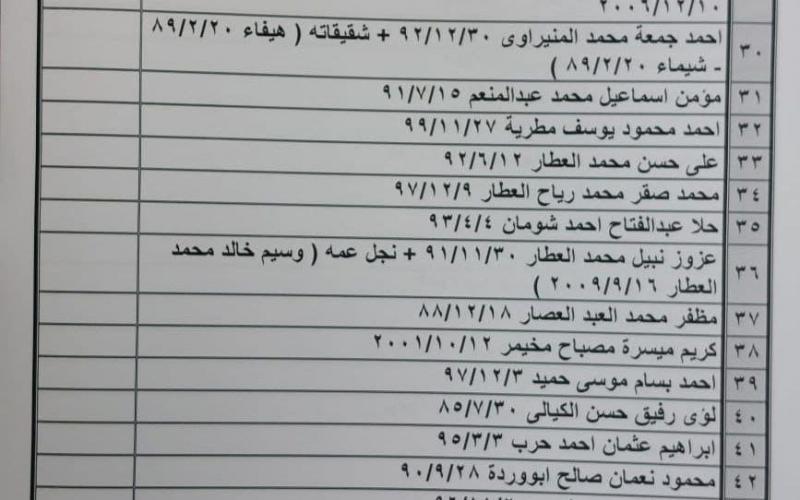 ٢٠٠٦/١٢/١٠
٣٠ احمد جمعة محمد المنيراوى ٩٢/١٢/٣٠ + شقيقاته ( هيفاء ٨٩/٢/٢٠
- شيماء ٨٩/٢/٢٠ )
٣١ مؤمن اسماعيل محمد عبدالمنعم ٩١/٧/١٥
٣٢ احمد محمود يوسف مطرية ٩٩/١١/٢٧
٣٣ على حسن محمد العطار ٩٢/٦/١٢
٣٤ محمد صقر محمد رياح العطار ٩٧/١٢/٩
٣٥ حلا عبدالفتاح احمد شومان ٩٣/٤/٤
٣٦ عزوز نبيل محمد العطار ٩١/١١/٣٠ + نجل عمه ( وسيم خالد محمد
العطار ٢٠٠٩/٩/١٦ )
٣٧ مظفر محمد العبد العصار ٨٨/١٢/١٨
٣٨ كريم ميسرة مصباح مخيمر ٢٠٠١/١٠/١٢
٣٩ احمد بسام موسى حميد ٩٧/١٢/٣
٤٠ لؤى رفيق حسن الكيالى ٨٥/٧/٣٠
٤١ ابراهيم عثمان احمد حرب ٩٥/٣/٣
٤٢ محمود نعمان صالح ابووردة ٩٠/٩/٢٨